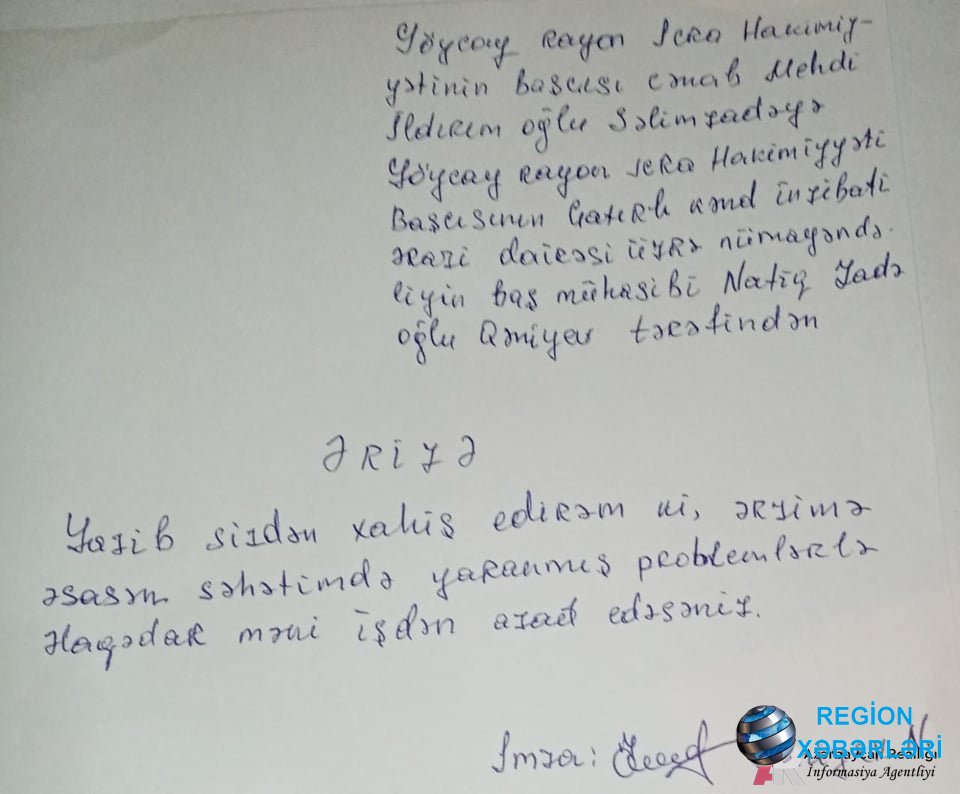 Göyçay rayon İcra Hakimiy-
yətinin başçısı cənab Mehdi
İldırım oğlu Səlimzadəyə
Göyçay rayon icra Hakimiyyəti
Başçısının kənd inzibati
ərazi dairəsi üzrə nümayəndə-
liyin baş mühasibi Natiq Zadə
oğlu Qəniyev tərəfindən
ƏRİZƏ
Yazıb sizdən xahiş edirəm ki, ərzimə
əsasən səhətimdə yaranmış problemlərlə
əlaqədar məni işdən azad edəsəniz.
İmza:
REGİON
XƏBƏRLƏRİ
Azərbaycan Reallığı
İnformasiya Agentliyi